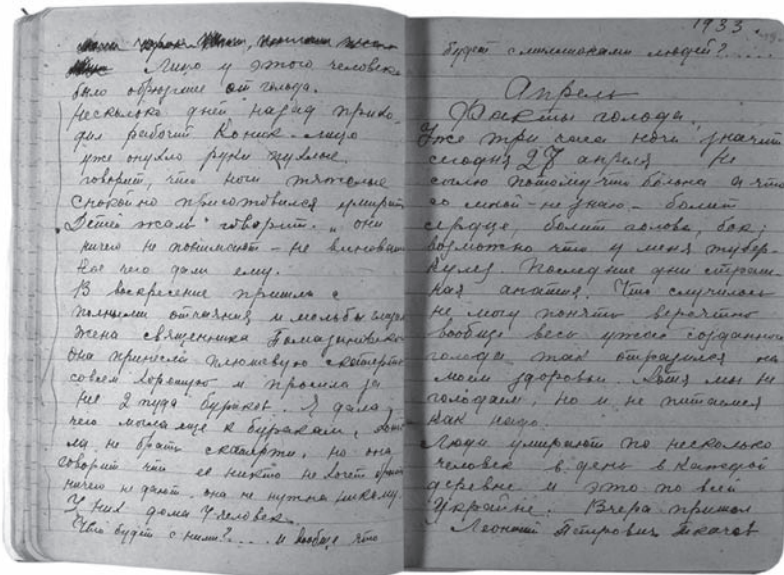 Лицо у этого человека
было обрюзгшее от голода.
Несколько дней назад прихо-
дил рабочий Коник – лицо
уже опухло руки пухлые,
говорит, что ноги тяжелые
спокойно приготовился умирать
„Детей жаль" говорит – „они
ничего не понимают – не виноваты
Кое чего дали ему.
В воскресение пришла с
полными отчаяния и мольбы глаза
жена священника
она принесла плюшевую скатерть
совсем хорошую и просила за
неё 2 пуда бураков. Я дала,
чего могла еще к буракам,
ла не брать скатерти, но она
говорит что ее никто не хочет брать
ничего не дают. она не нужна никому.
У них дома 7 человек.
Что будет с ними?... и вообще что
1933
будет с миллионами людей?....
Апрель
Факты голода.
Уже три часа ночи значит
сегодня 27 апреля Не
сплю потому что больна а что
со мной – не знаю – болит
сердце, болит голова, бок;
возможно что у меня тубер-
кулез. Последние дни страш-
ная апатия. Что случилось
не могу понять вероятно
вообще весь ужас созданного
голода так отразился на
моем здоровьи. Хотя мы не
голодаем, но и не питаемся
как надо.
Люди умирают по несколько
человек в день в каждой
деревне и это по всей
Украине. Вчера пришел
Леонтий Петрович Ткачов